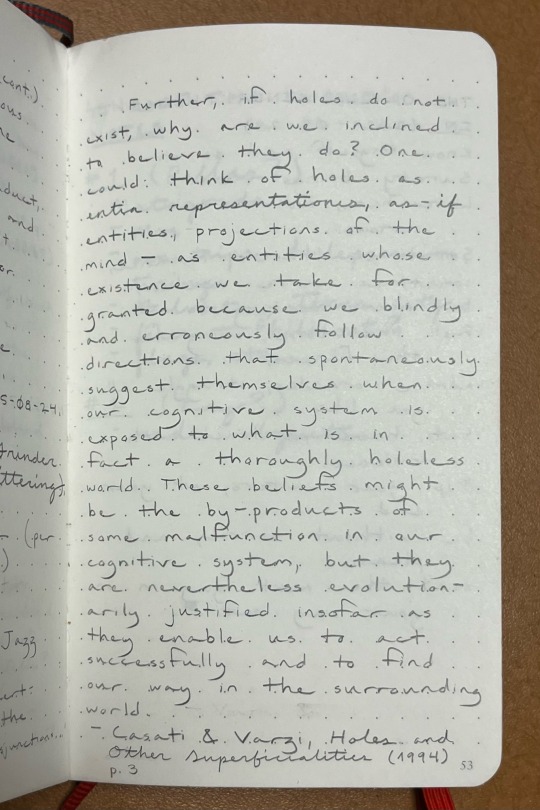 cont.)
ous
ne
duct,
and
t.
or
e
5-08-24.
Grunder
ttering,
- (per
)
Jazz
ert:
the
Further, if holes do not
exist, why are we inclined
to believe they do? One
could think of holes as
entia representationis, as-if
entities, projections of the
mind – as entities whose
existence we take for
granted because we blindly
and erroneously follow
directions that spontaneously
suggest themselves when
our cognitive system is
exposed to what is in
fact a thoroughly holeless
world. These beliefs might
be the by-products of
some malfunction in our
cognitive system, but they
are nevertheless evolution-
arily justified insofar as
they enable us to act
successfully and to find
our way in the surrounding
world.
- Casati & Varzi, Holes and
Other Superficialities (1994)
p. 3
53